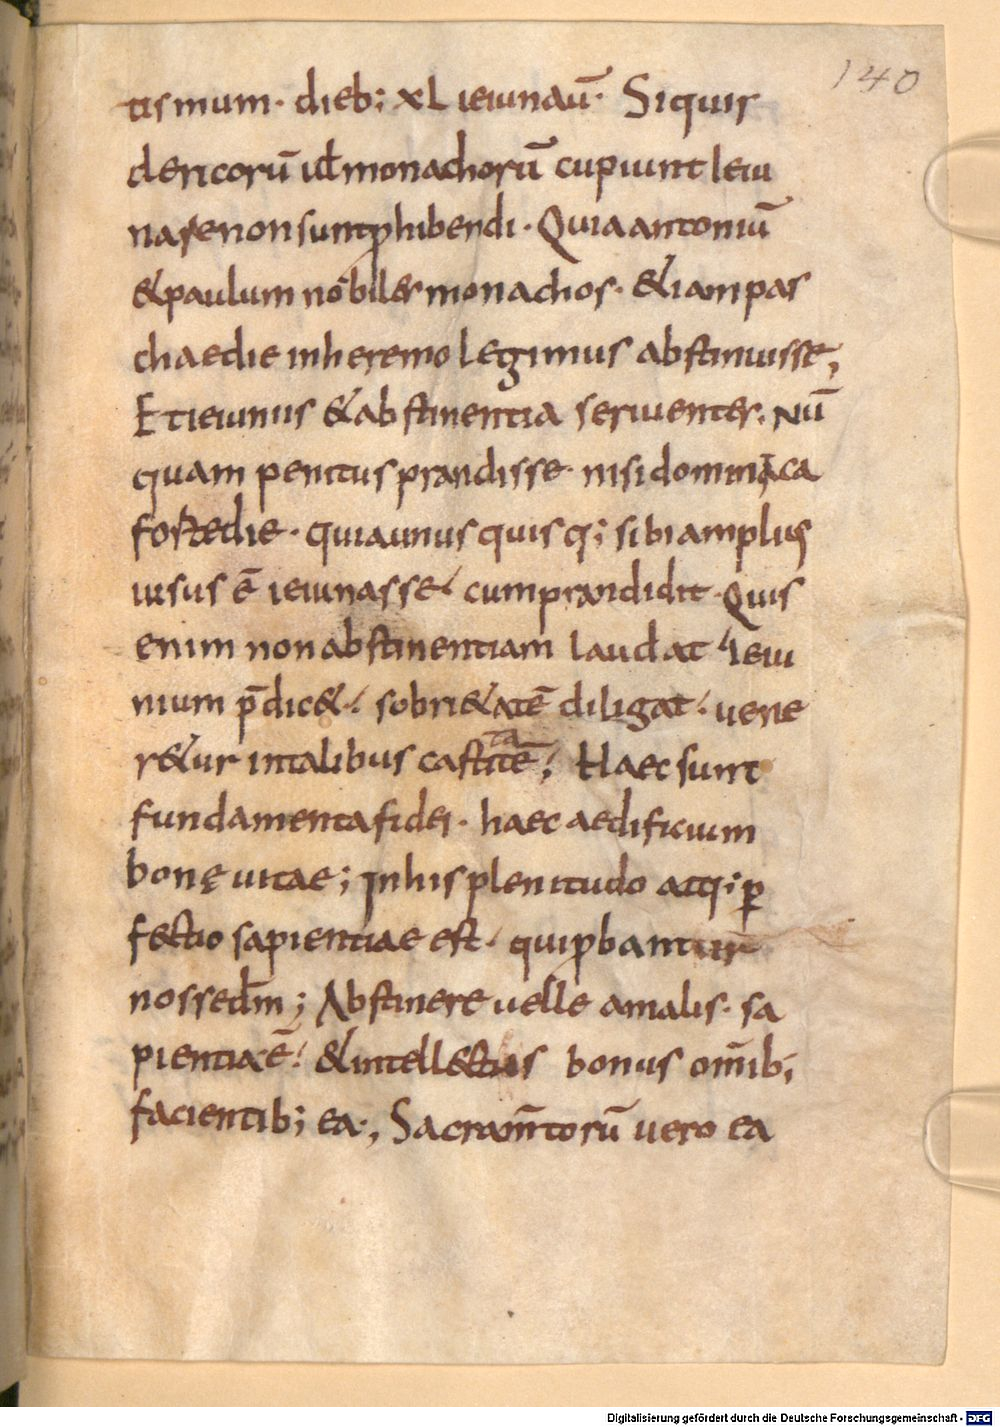 140
tismum· dieb; xl ieiunaū· Siquis
clericorū ūl monachorū cupiunt ieiu
nare non sunt ꝓhibendi· Quia antoniū
& paulum nobiles monachos· & iam pas
chae die inheremo legimus abstinuisse;
Et ieiunus & abstinentia seruientes. Nū
quam penitus prandisse· nisi dominica
forte die· quia unus quis q; sibi amplius
uisus ē ieiunasse cum prandidit· Quis
enim non abstinentiam laudat ieiu
nium p̄dic& sobri&atē diligat uene
r&ur intalibus castitatē; Haec sunt
fundamenta fidei· haec aedificium
bonę uitae; Inhis plenitudo atq; ꝑ
fectio sapientiae est· qui ꝓbantur
nosse dm̄; Abstinere uelle amalis· sa
pientia ē & intellectus bonus om̄ib;
facientib; ea·, Sacram̄torū uero ea
Digitalisierung gefördert durch die Deutsche Forschungsgemeinschaft - DFG